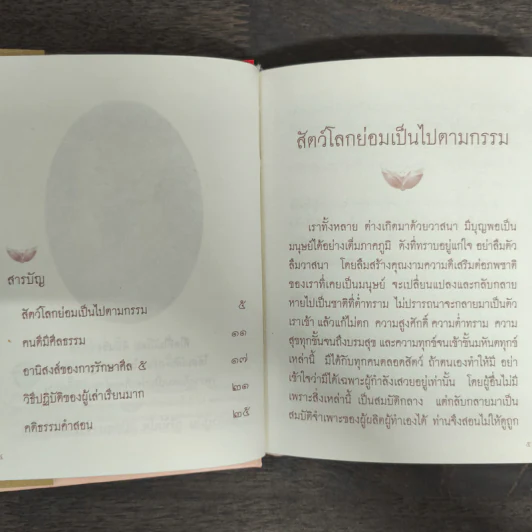 สารบัญ
สัตว์โลกย่อมเป็นไปตามกรรม ๕
คนดีมีศีลธรรม ๑๑
อานิสงส์ของการรักษาศีล ๕ ๑๗
วิธีปฏิบัติของผู้เล่าเรียนมาก ๒๑
คติธรรมคำสอน ๒๕
สัตว์โลกย่อมเป็นไปตามกรรม
เราทั้งหลาย ต่างเกิดมาด้วยวาสนา มีบุญพอเป็น
มนุษย์ได้อย่างเต็มภาคภูมิ ดังที่ทราบอยู่แก่ใจ อย่าลืมตัว
ลืมวาสนา โดยลืมสร้างคุณงามความดีเสริมต่อภพชาติ
ของเราที่เคยเป็นมนุษย์ จะเปลี่ยนแปลงและกลับกลาย
หายไปเป็นชาติที่ต่ำทราม ไม่ปรารถนาจะกลายมาเป็นตัว
เราเข้า แล้วแก้ไม่ตก ความสูงศักดิ์ ความต่ำทราม ความ
สุขทุกขั้นจนถึงบรมสุข และความทุกข์จนเข้าขั้นมหันตทุกข์
เหล่านี้ มีได้กับทุกคนตลอดสัตว์ ถ้าตนเองทำให้มี อย่า
เข้าใจว่ามีได้เฉพาะผู้กำลังเสวยอยู่เท่านั้น โดยผู้อื่นไม่มี
เพราะสิ่งเหล่านี้ เป็นสมบัติกลาง แต่กลับกลายมาเป็น
สมบัติจำเพาะของผู้ผลิตผู้ทำเองได้ ท่านจึงสอนไม่ให้ดูถูก